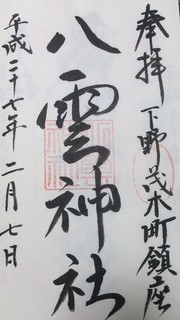 奉拝
下野茂木町鎮座
八雲神社
平成二十七年二月七日